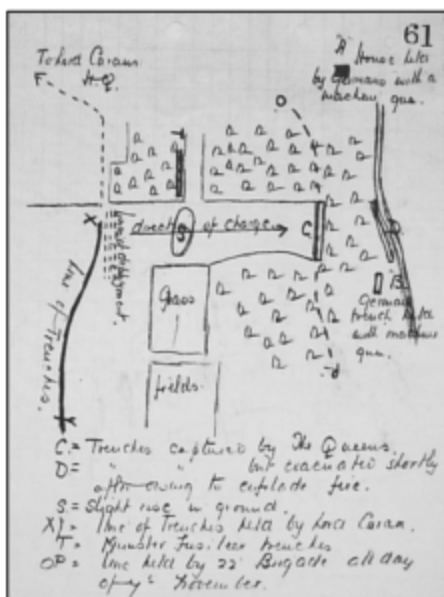 61
To Lord Cavan
H.Q.
F
A House held
by Germans with a
machine gun.
O
T
X
direction of charge
S
C
D
B
German
trench held
with machine
gun.
Line of Trenches.
Grass
fields.
P
Y
C = Trenches captured by The Queens.
D = " " but evacuated shortly
after owing to enfilade fire.
S = Slight rise in ground.
XY = line of Trenches held by Lord Cavan.
T = Munster Fusilier trenches
OP = line held by 22 Brigade all day
of 7th November.